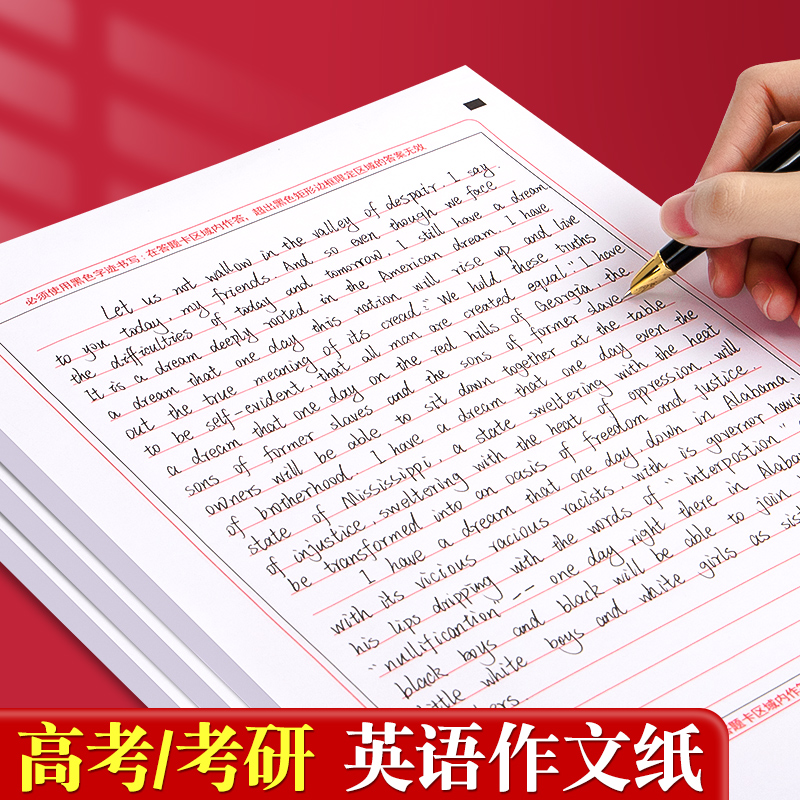 必须使用黑色字迹书写：在答题卡区域内作答，超出黑色矩形边框限定区域的答案无效
Let us not wallow in the valley of despair, I say
to you today, my friends. And so even though we face
the difficulties of today and tomorrow, I still have a dream
It is a dream deeply rooted in the American dream. I have
a dream that one day this nation will rise up and live
out the true meaning of its cread: "We hold these truths
to be self-evident, that all man are created equal." I have
a dream that one day on the red hills of Georgia, the
sons of former slaves and the sons of former slave
owners will be able to sit down together at the table
of brotherhood. I have a dream that one day even the
state of Mississippi, a state sweltering with the heat
of injustice, sweltering with the heat of oppression, will
be transformed into an oasis of freedom and justice.
I have a dream that one day, down in Alabama,
with its vicious racious racists, with is governor having
his lips dripping with the words of "interpostion"
"nullificantion" -- one day right there in Alabama
black boys and black will be able to join
little white boys and white girls as sist
高考/考研 英语作文纸